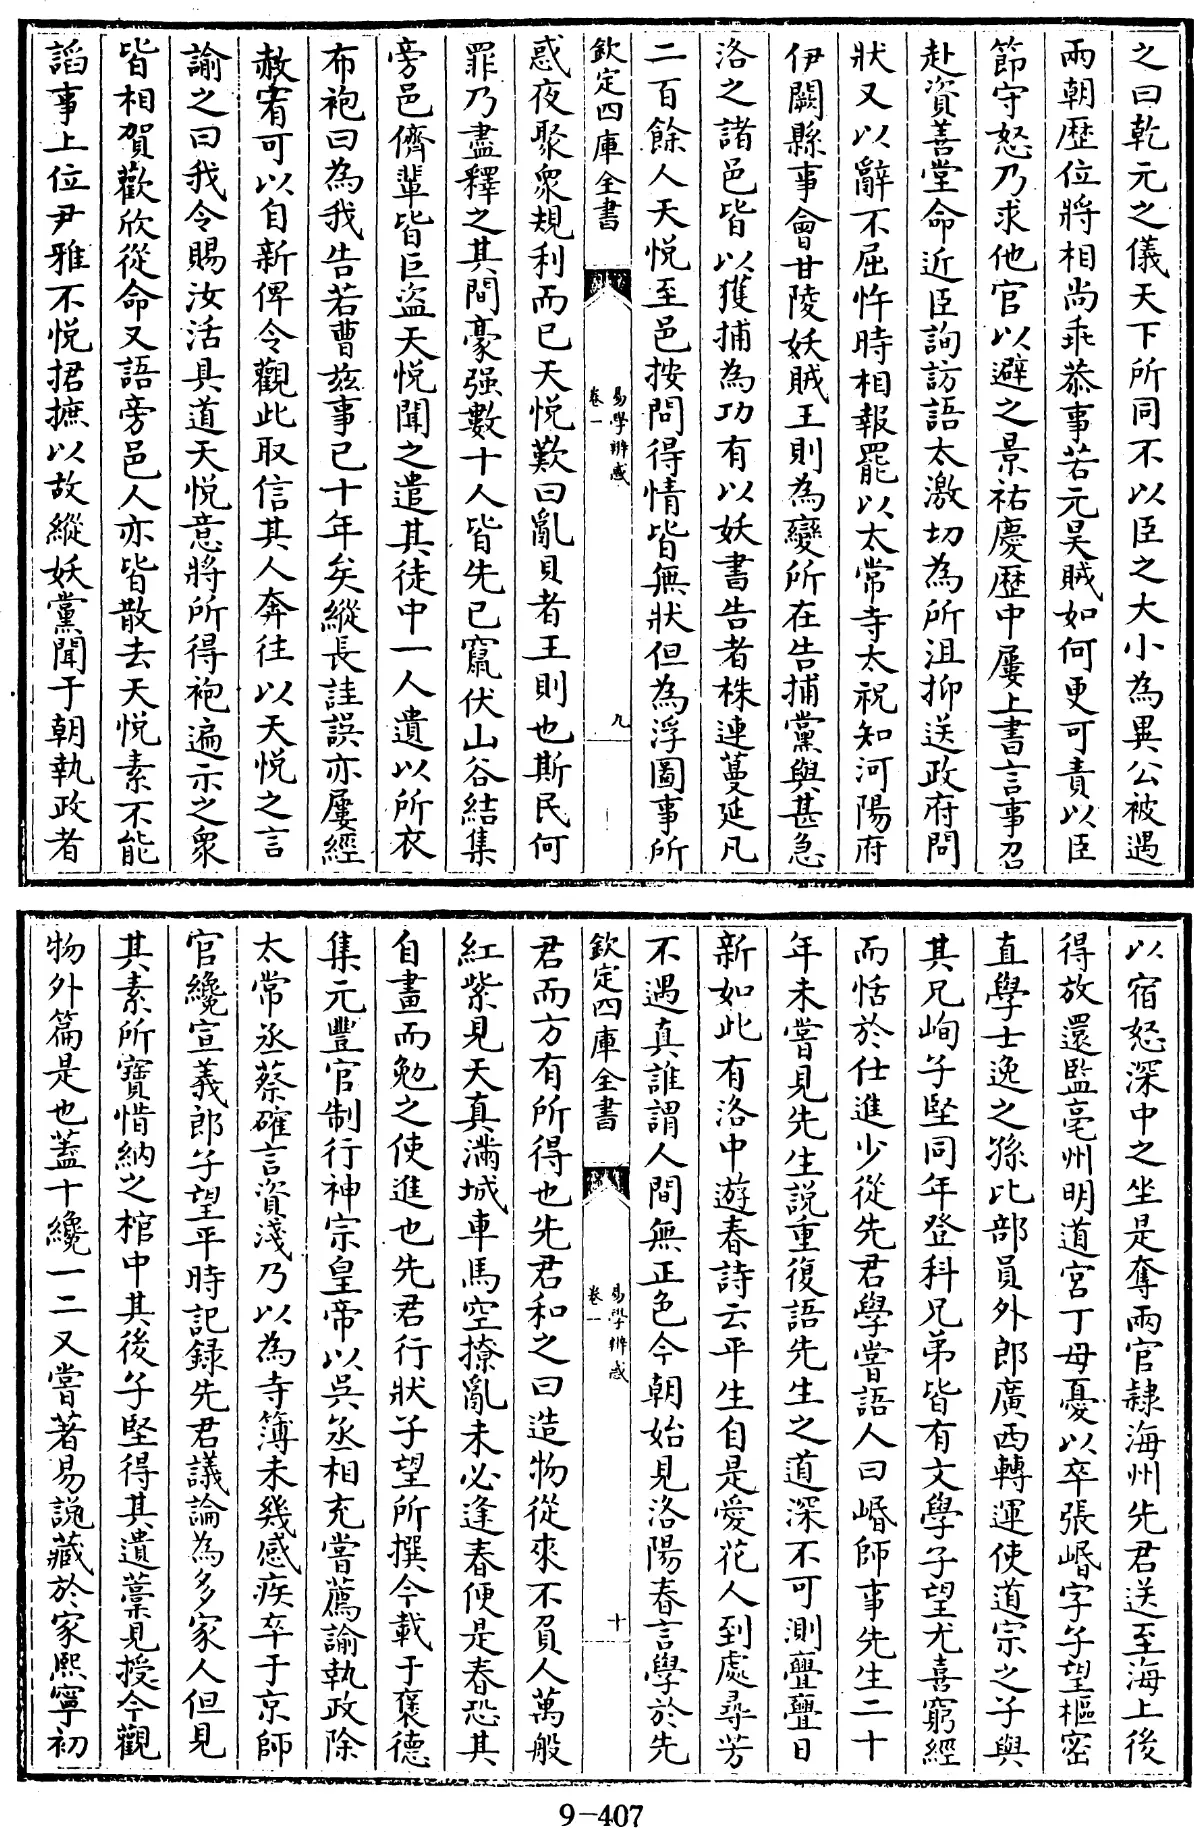 之曰乾元之儀天下所同不以臣之大小為異公被遇
兩朝歷位將相尚乖恭事若元昊賊如何更可責以臣
節守怒乃求他官以避之景祐慶歷中屢上書言事召
赴資善堂命近臣詢訪語太激切為所沮抑送政府問
狀又以辭不屈忤時相報罷以太常寺太祝知河陽府
伊闕縣事會甘陵妖賊王則為變所在告捕黨與甚急
洛之諸邑皆以獲捕為功有以妖書告者株連蔓延凡
二百餘人天悅至邑按問得情皆無狀但為浮圖事所
欽定四庫全書
易學辨惑
卷一
九
惑夜聚衆規利而已天悅歎曰亂貝者王則也斯民何
罪乃盡釋之其間豪强數十人皆先已竄伏山谷結集
旁邑儕輩皆巨盗天悅聞之遣其徒中一人遺以所衣
布袍曰為我告若曹玆事已十年矣縱長詿誤亦屢經
赦宥可以自新俾令觀此取信其人奔往以天悅之言
諭之曰我令賜汝活具道天悅意將所得袍遍示之衆
皆相賀歡欣從命又語旁邑人亦皆散去天悅素不能
謟事上位尹雅不悅捃摭以故縱妖黨聞于朝執政者
以宿怒深中之坐是奪兩官隷海州先君送至海上後
得放還監亳州明道宮丁母憂以卒張㟭字子望樞密
直學士逸之孫比部員外郎廣西轉運使道宗之子與
其兄峋子堅同年登科兄弟皆有文學子望尤喜窮經
而恬於仕進少從先君學嘗語人曰㟭師事先生二十
年未嘗見先生說重復語先生之道深不可測亹亹日
新如此有洛中遊春詩云平生自是愛花人到處尋芳
不遇真誰謂人間無正色今朝始見洛陽春言學於先
欽定四庫全書
易學辨惑
卷一
十
君而方有所得也先君和之曰造物從來不負人萬般
紅紫見天真滿城車馬空撩亂未必逢春便是春恐其
自畫而勉之使進也先君行狀子望所撰今載于褒德
集元豐官制行神宗皇帝以吳丞相充嘗薦諭執政除
太常丞蔡確言資淺乃以為寺簿未幾感疾卒于京師
官纔宣義郎子望平時記錄先君議論為多家人但見
其素所寶惜納之棺中其後子堅得其遺藁見授今觀
物外篇是也蓋十纔一二又嘗著易説藏於家熙寧初
9-407